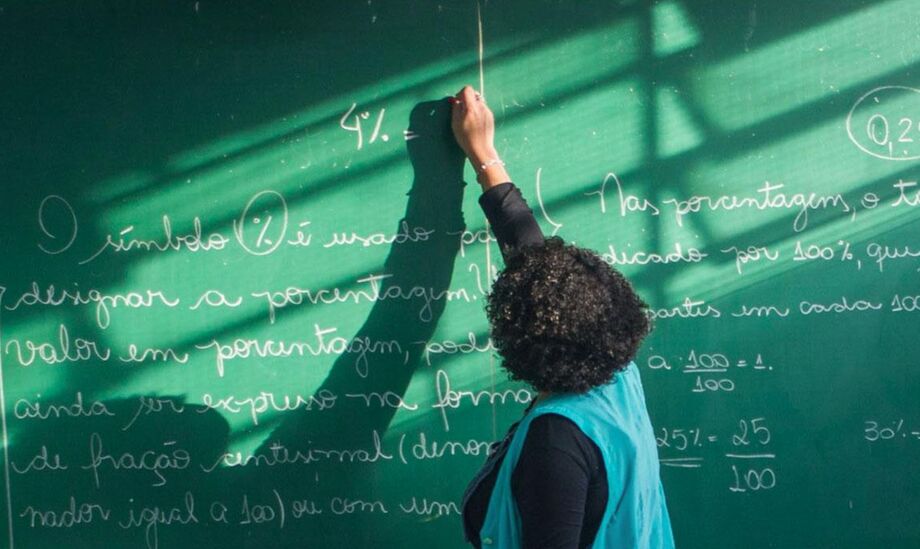 4% =
0,2
O símbolo % é usado pa
designar a porcentagem.
valor em porcentagem, pode
ainda ser expresso na forma
de fração centesimal (denomi
nador igual a 100) ou com um
Nas porcentagem, o
dicado por 100%, que
partes em cada 100
à 100/100 = 1.
25% = 25/100
30%